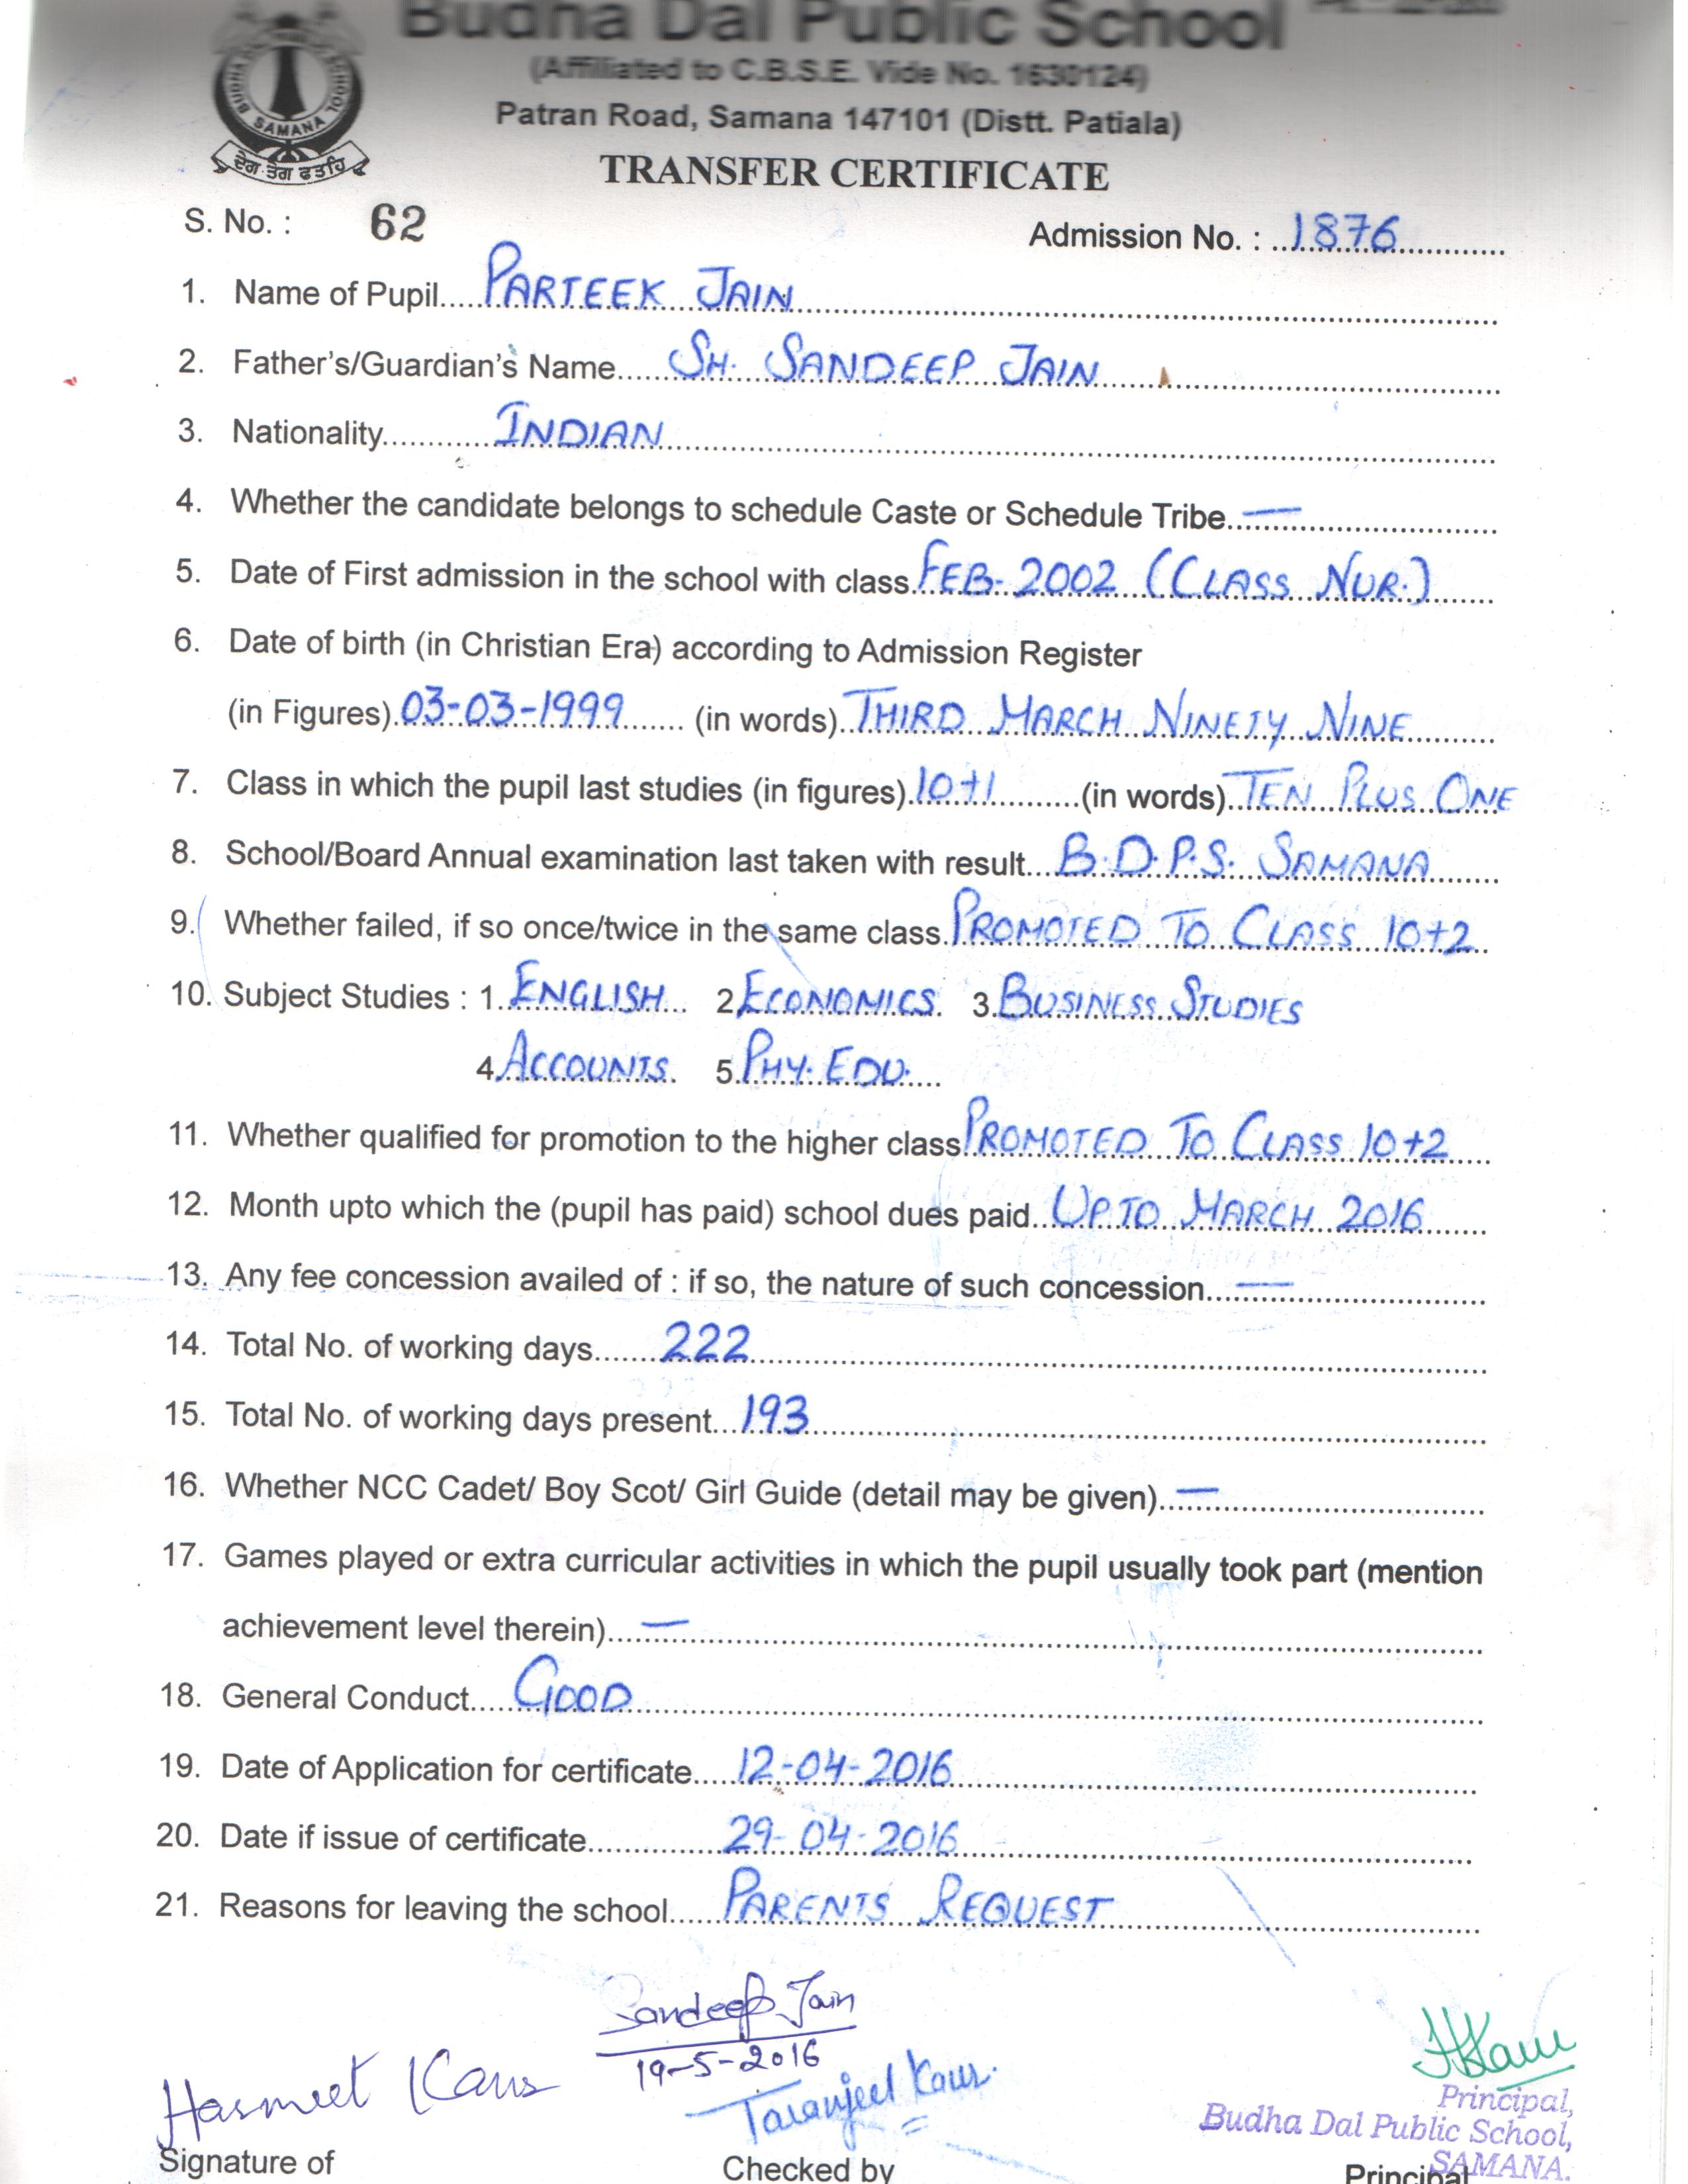 Budha Dal Public School
(Affiliated to C.B.S.E. Vide No. 1630124)
Patran Road, Samana 147101 (Distt. Patiala)
SAMANA
ਦੇਗ ਤੇਗ ਫਤਹਿ
TRANSFER CERTIFICATE
S. No. : 62 Admission No. : 1876
1. Name of Pupil PARTEEK JAIN
2. Father's/Guardian's Name SH. SANDEEP JAIN
3. Nationality INDIAN
4. Whether the candidate belongs to schedule Caste or Schedule Tribe —
5. Date of First admission in the school with class FEB- 2002 (CLASS NUR.)
6. Date of birth (in Christian Era) according to Admission Register
(in Figures) 03-03-1999 (in words) THIRD MARCH NINETY NINE
7. Class in which the pupil last studies (in figures) 10+1 (in words) TEN PLUS ONE
8. School/Board Annual examination last taken with result B.D.P.S. SAMANA
9. Whether failed, if so once/twice in the same class PROMOTED TO CLASS 10+2
10. Subject Studies : 1. ENGLISH 2 ECONOMICS 3. BUSINESS STUDIES
4. ACCOUNTS 5. PHY. EDU.
11. Whether qualified for promotion to the higher class PROMOTED TO CLASS 10+2
12. Month upto which the (pupil has paid) school dues paid UPTO MARCH 2016
13. Any fee concession availed of : if so, the nature of such concession —
14. Total No. of working days 222
15. Total No. of working days present 193
16. Whether NCC Cadet/ Boy Scot/ Girl Guide (detail may be given) —
17. Games played or extra curricular activities in which the pupil usually took part (mention
achievement level therein) —
18. General Conduct GOOD
19. Date of Application for certificate 12-04-2016
20. Date if issue of certificate 29-04-2016
21. Reasons for leaving the school PARENTS REQUEST
Sandeep Jain
19-5-2016
Harmeet Kaur Taranjeet Kaur.
Principal,
Budha Dal Public School,
SAMANA.
Signature of Checked by Principal